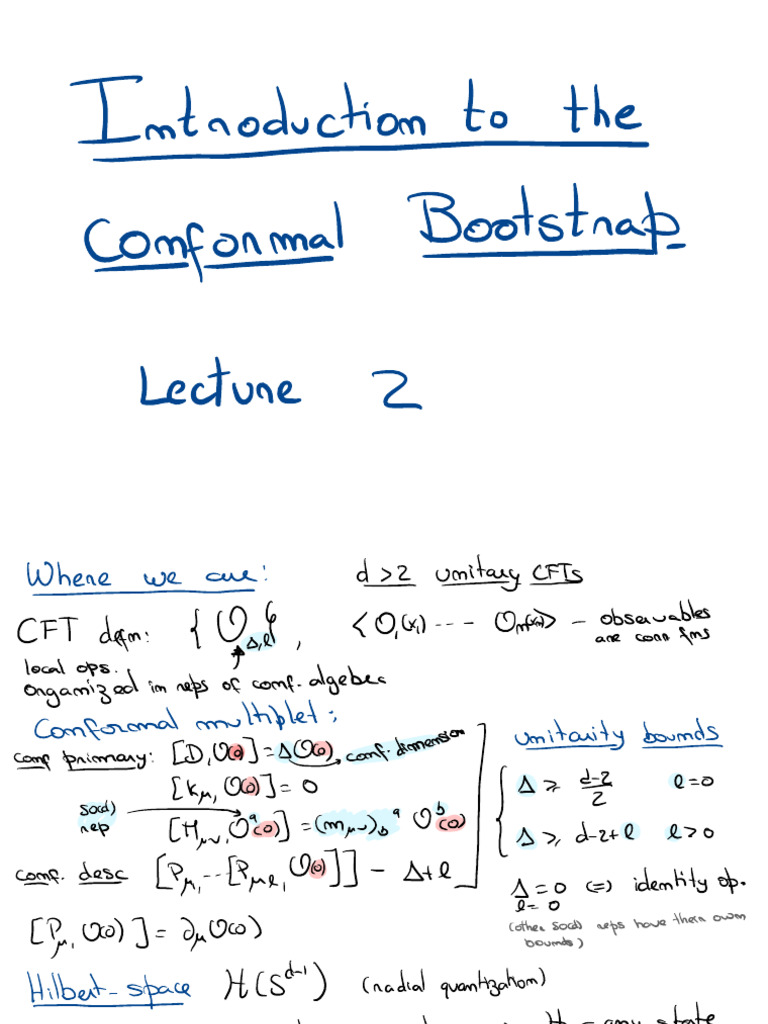 Introduction to the
Conformal Bootstrap
Lecture 2
Where we are: d>2 unitary CFTs
CFT defn: { O_{Δ,ℓ} }, <O₁(x₁) --- Oₙ(xₙ)> - observables
are corr fns
local ops.
organized in reps of conf. algebra
Conformal multiplet: unitarity bounds
conf primary: [D, O(0)] = ΔO(0) conf. dimension
[K_μ, O(0)] = 0
Δ ≥ (d-2)/2 ℓ=0
so(d) rep
[M_μν, O^a(0)] = (m_μν)_b^a O^b(0)
Δ ≥ d-2+ℓ ℓ>0
conf. desc [P_μ₁ --- [P_μℓ, O(0)]] - Δ+ℓ
Δ=0 ℓ=0 (=) identity op.
(other so(d) reps have their own
bounds)
[P_μ, O(0)] = ∂_μ O(0)
Hilbert-space H(S^{d-1}) (radial quantization)
H - any state